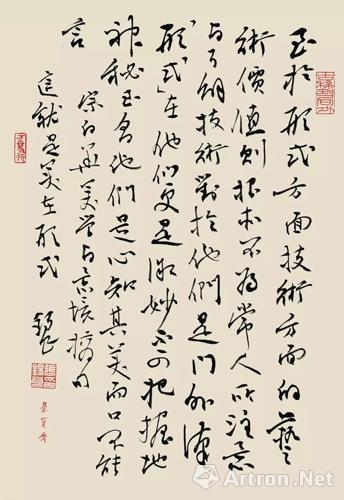 至於形式方面技術方面的藝
術價值則根本不為常人所注意
与了解技術對於他們是門外漢
「形式」在他們更是微妙不可把握地
神秘至多他們是心知其美而口不能
言
宗白華美学与意境摘句
這就是美在形式
Artron.Net